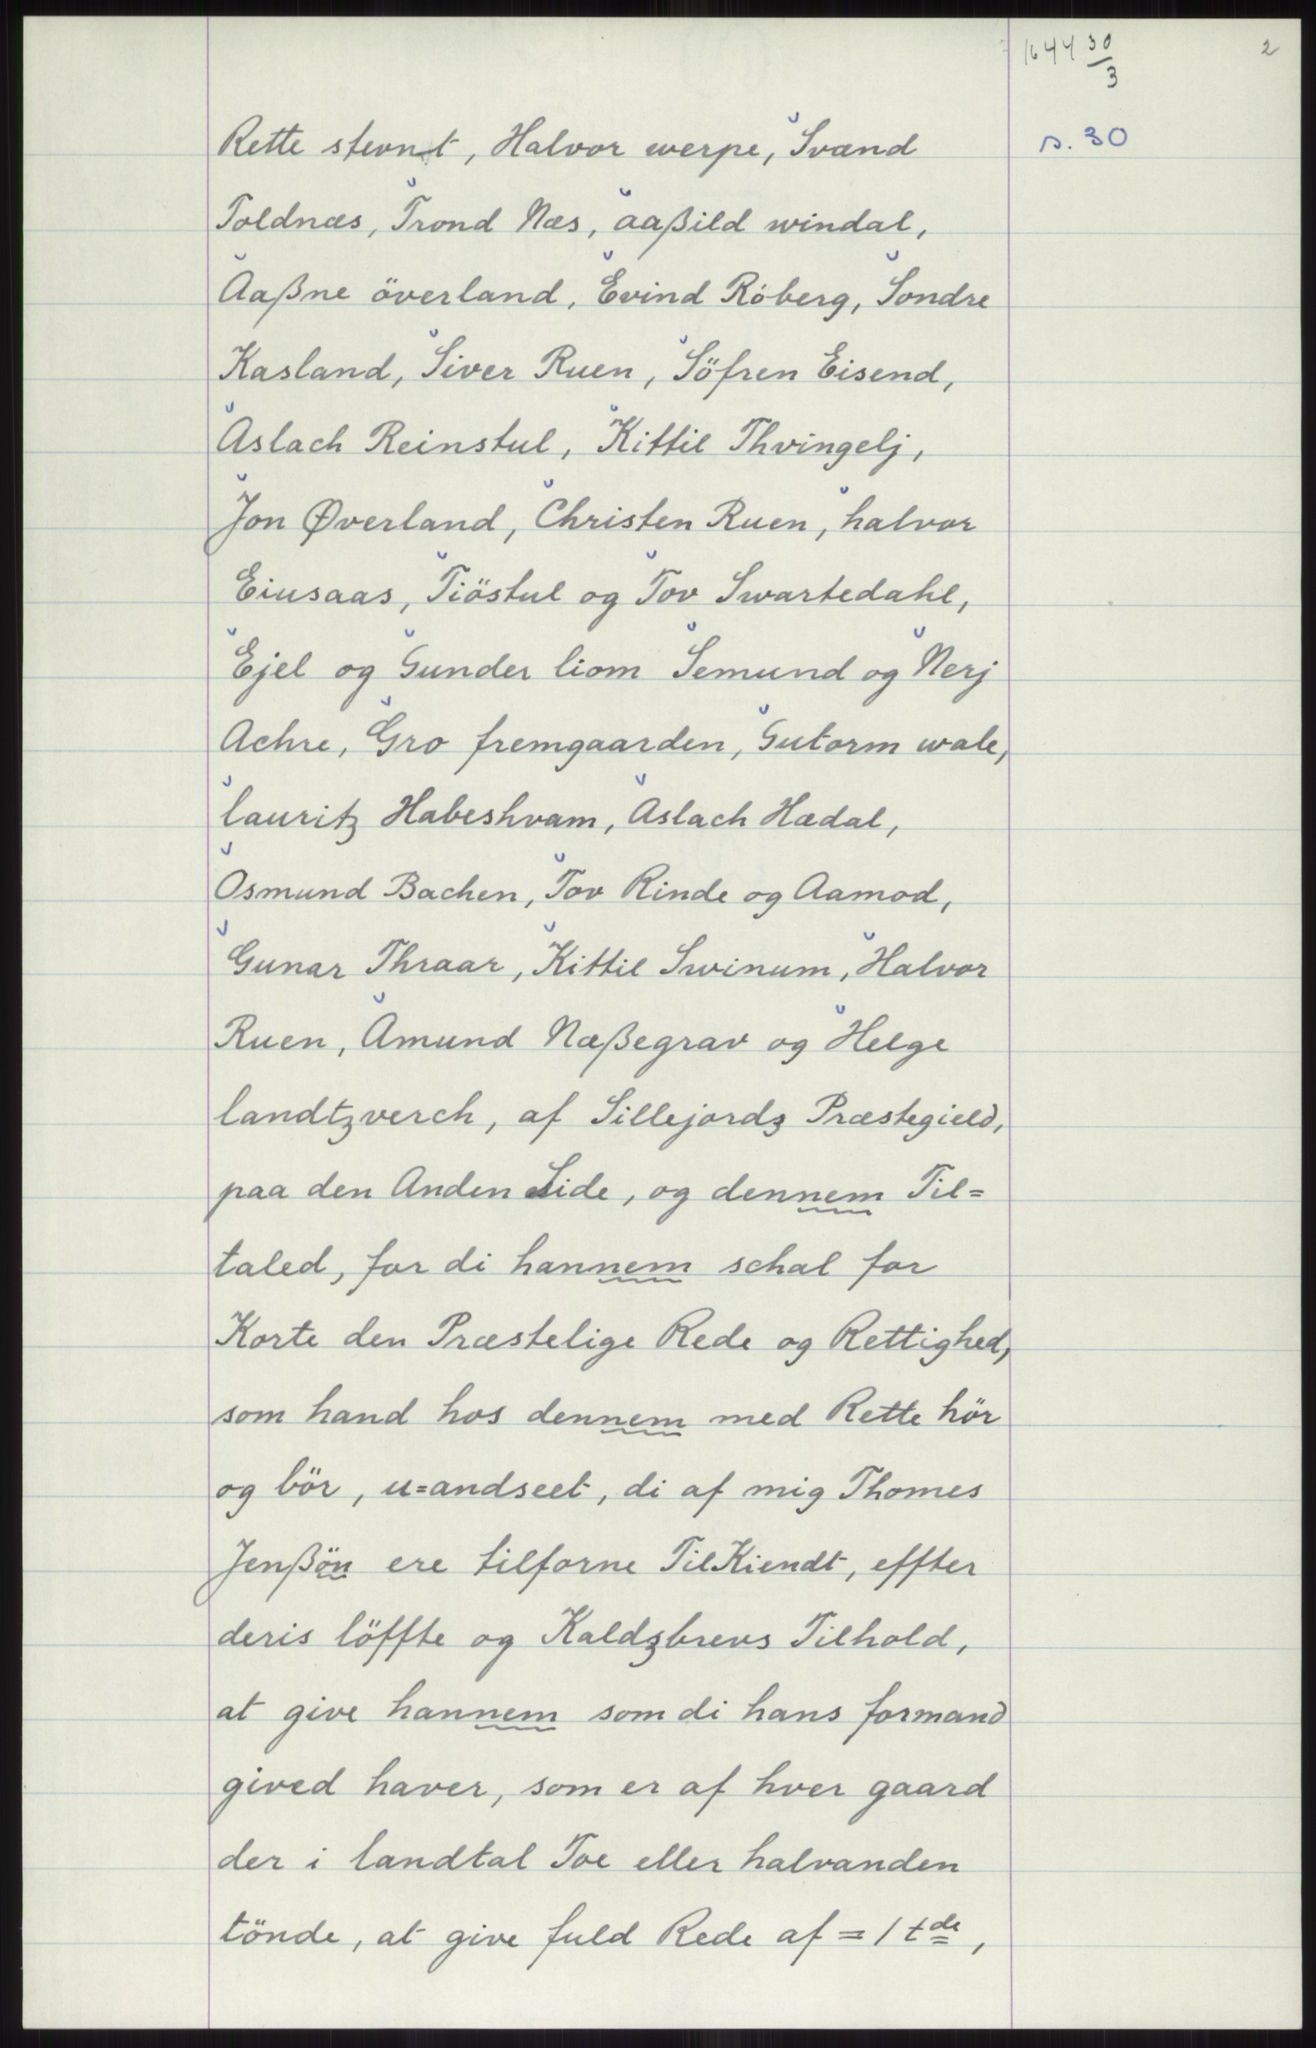 1644 30/3
2
s. 30
Rette stevnt, Halvor werpe, Svænd
Toldnæs, Trond Næs, aaßild windal,
Aaßne överland, Evind Röberg, Sondre
Kasland, Siver Ruen, Söfren Eisend,
Aslach Reinstul, Kittil Thvingelj,
Jon Øverland, Christen Ruen, halvor
Eiusaas, Tiöstul og Tov Swartedahl,
Ejel og Gunder liom Semund og Nerj
Achre, Gro fremgaarden, Gutorm wale,
lauritz Habeshvam, Aslach Hædal,
Osmund Bachen, Tov Rinde og Aamod,
Gunar Thraar, Kittil Swinum, Halvor
Ruen, Amund Næßegrav og Helge
landtzverch, af Sillejordz Præstegield,
paa den Anden Side, og dennem Til=
taled, for di hannem schal for
Korte den Præstelige Rede og Rettighed,
som hand hos dennem med Rette hör
og bör, u=andseet, di af mig Thomes
Jenßön ere tilforne TilKiendt, effter
deris löffte og Kaldzbrevs Tilhold,
at give hannem som di hans formand
gived haver, som er af hver gaard
der i landtal Toe eller halvanden
tönde, at give fuld Rede af = 1 tde,